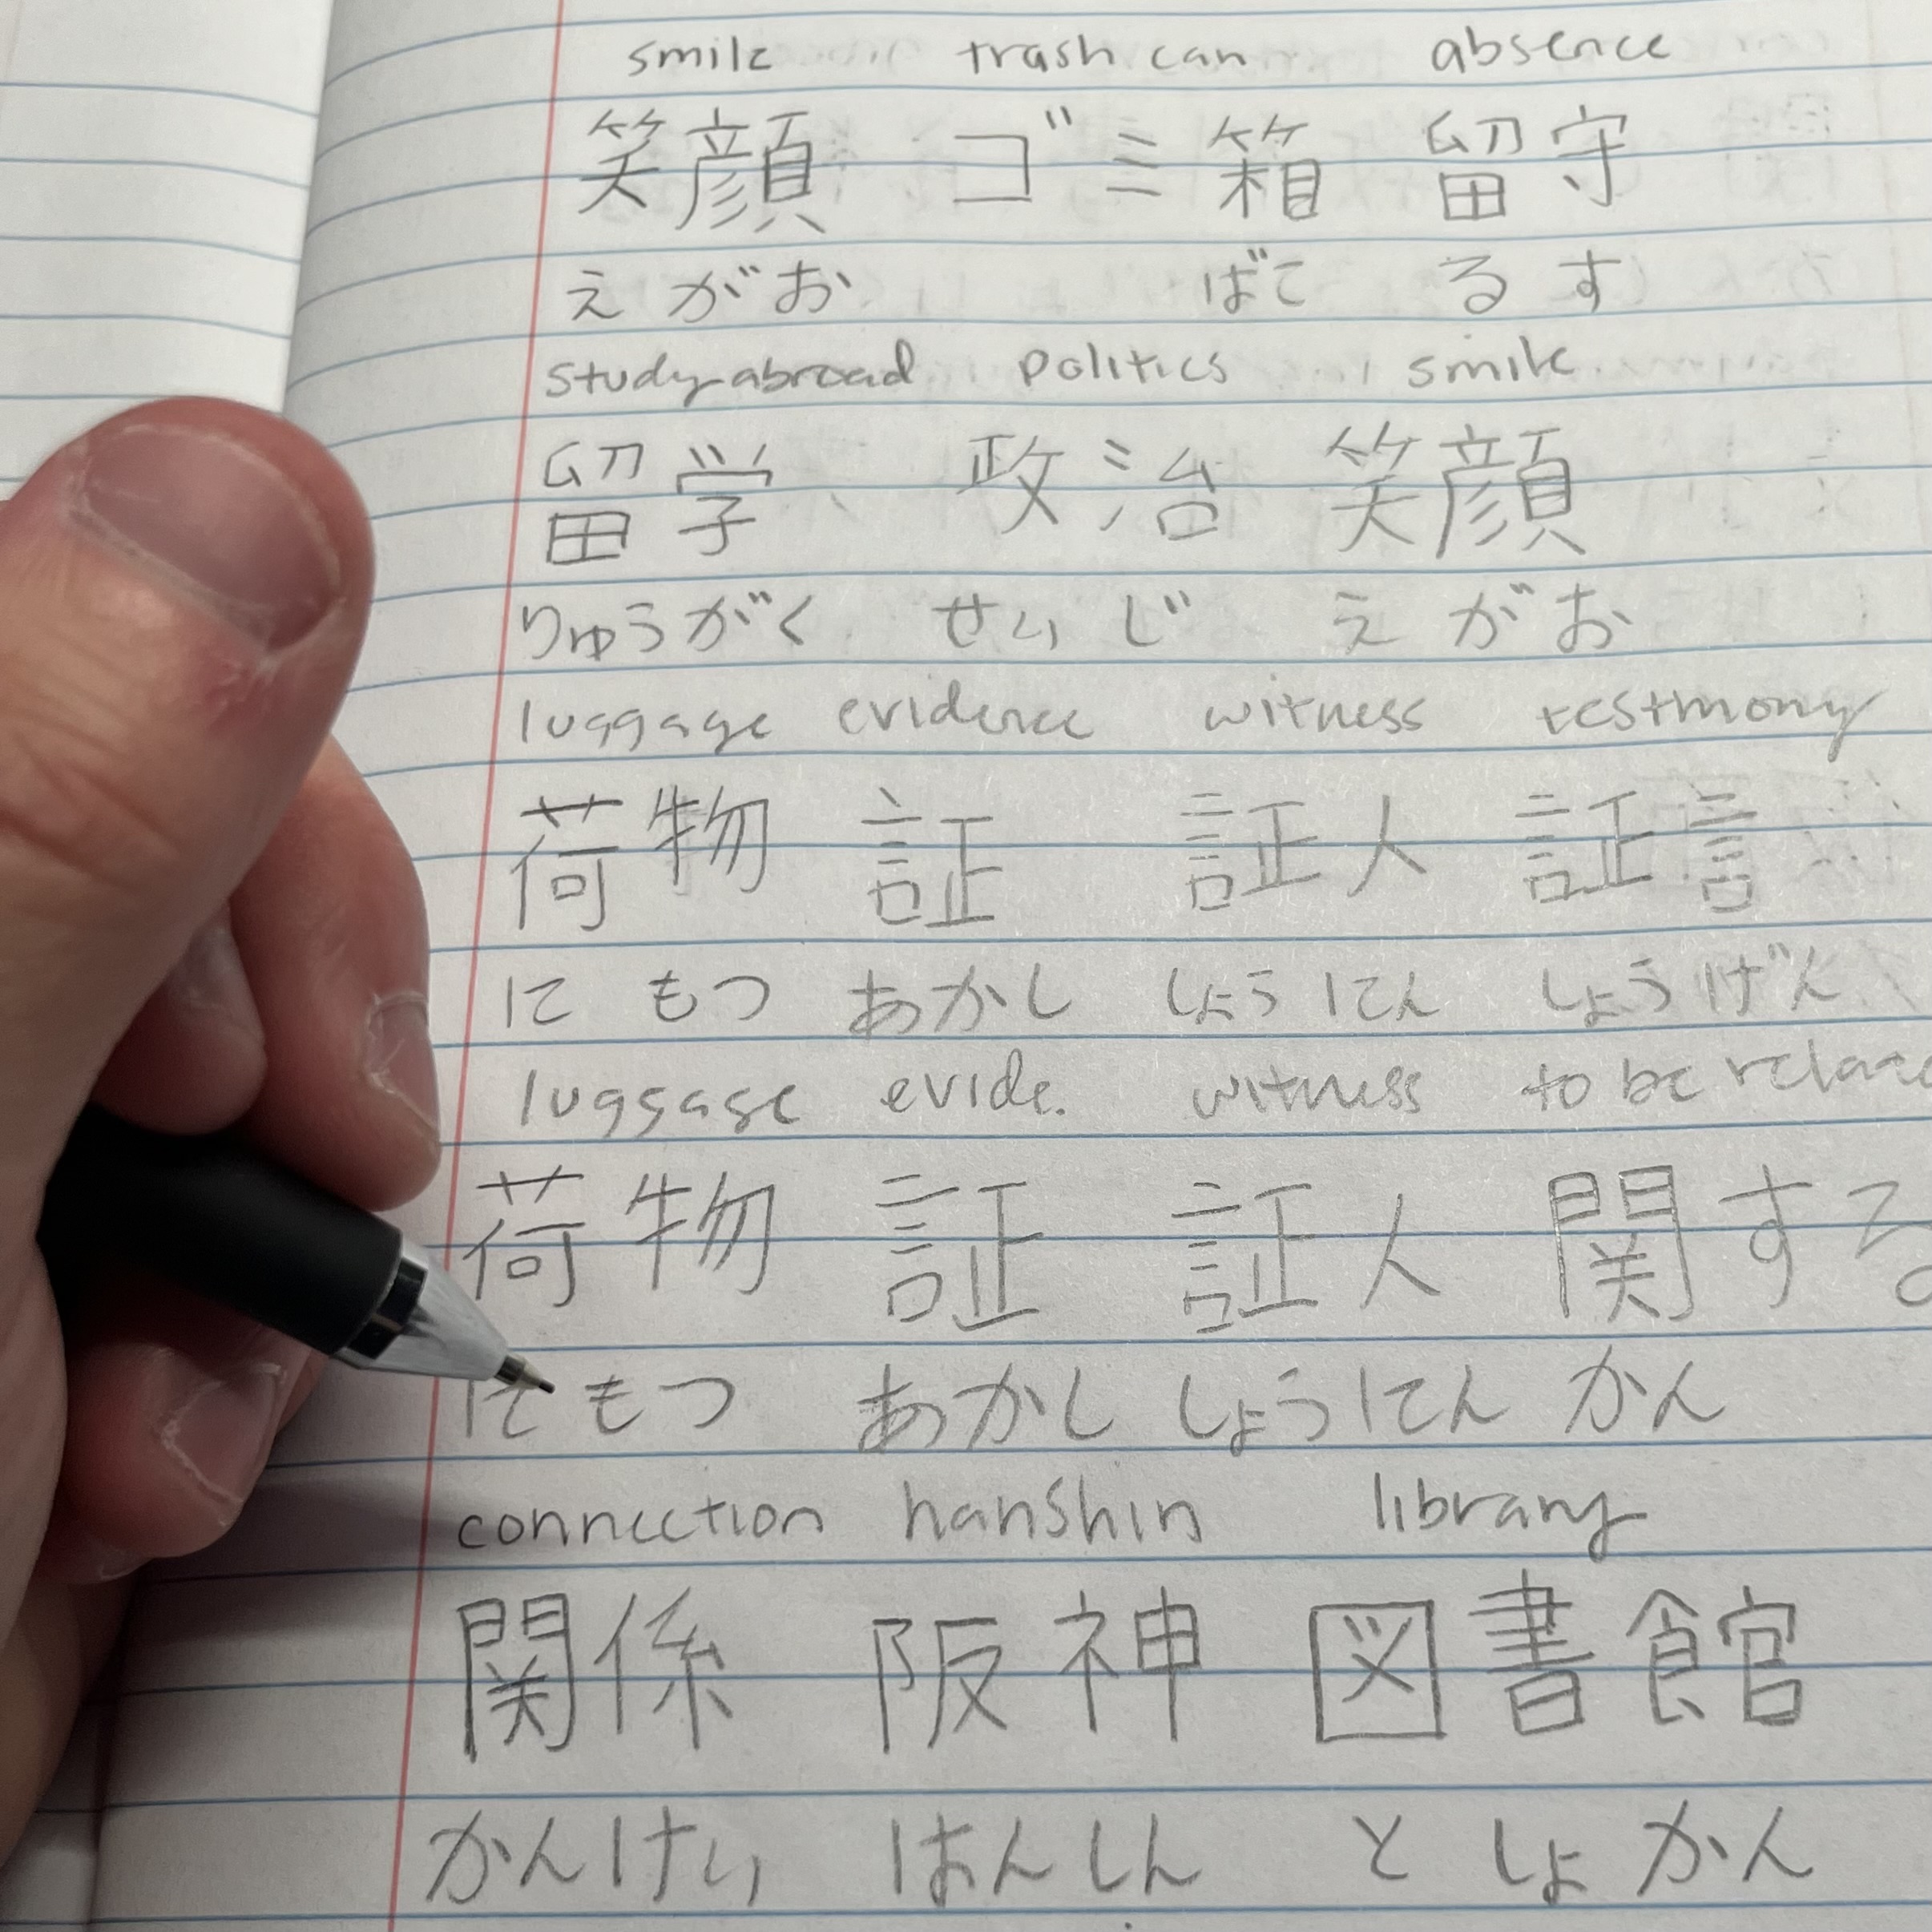 smile trash can absence
笑顔 ゴミ箱 留守
えがお ばこ るす
study abroad politics smile
留学 政治 笑顔
りゅうがく せいじ えがお
luggage evidence witness testmony
荷物 証 証人 証言
にもつ あかし しょうにん しょうげん
luggage evide. witness to be
荷物 証 証人 関する
にもつ あかし しょうにん かん
connection hanshin library
関係 阪神 図書館
かんけい はんしん としょかん